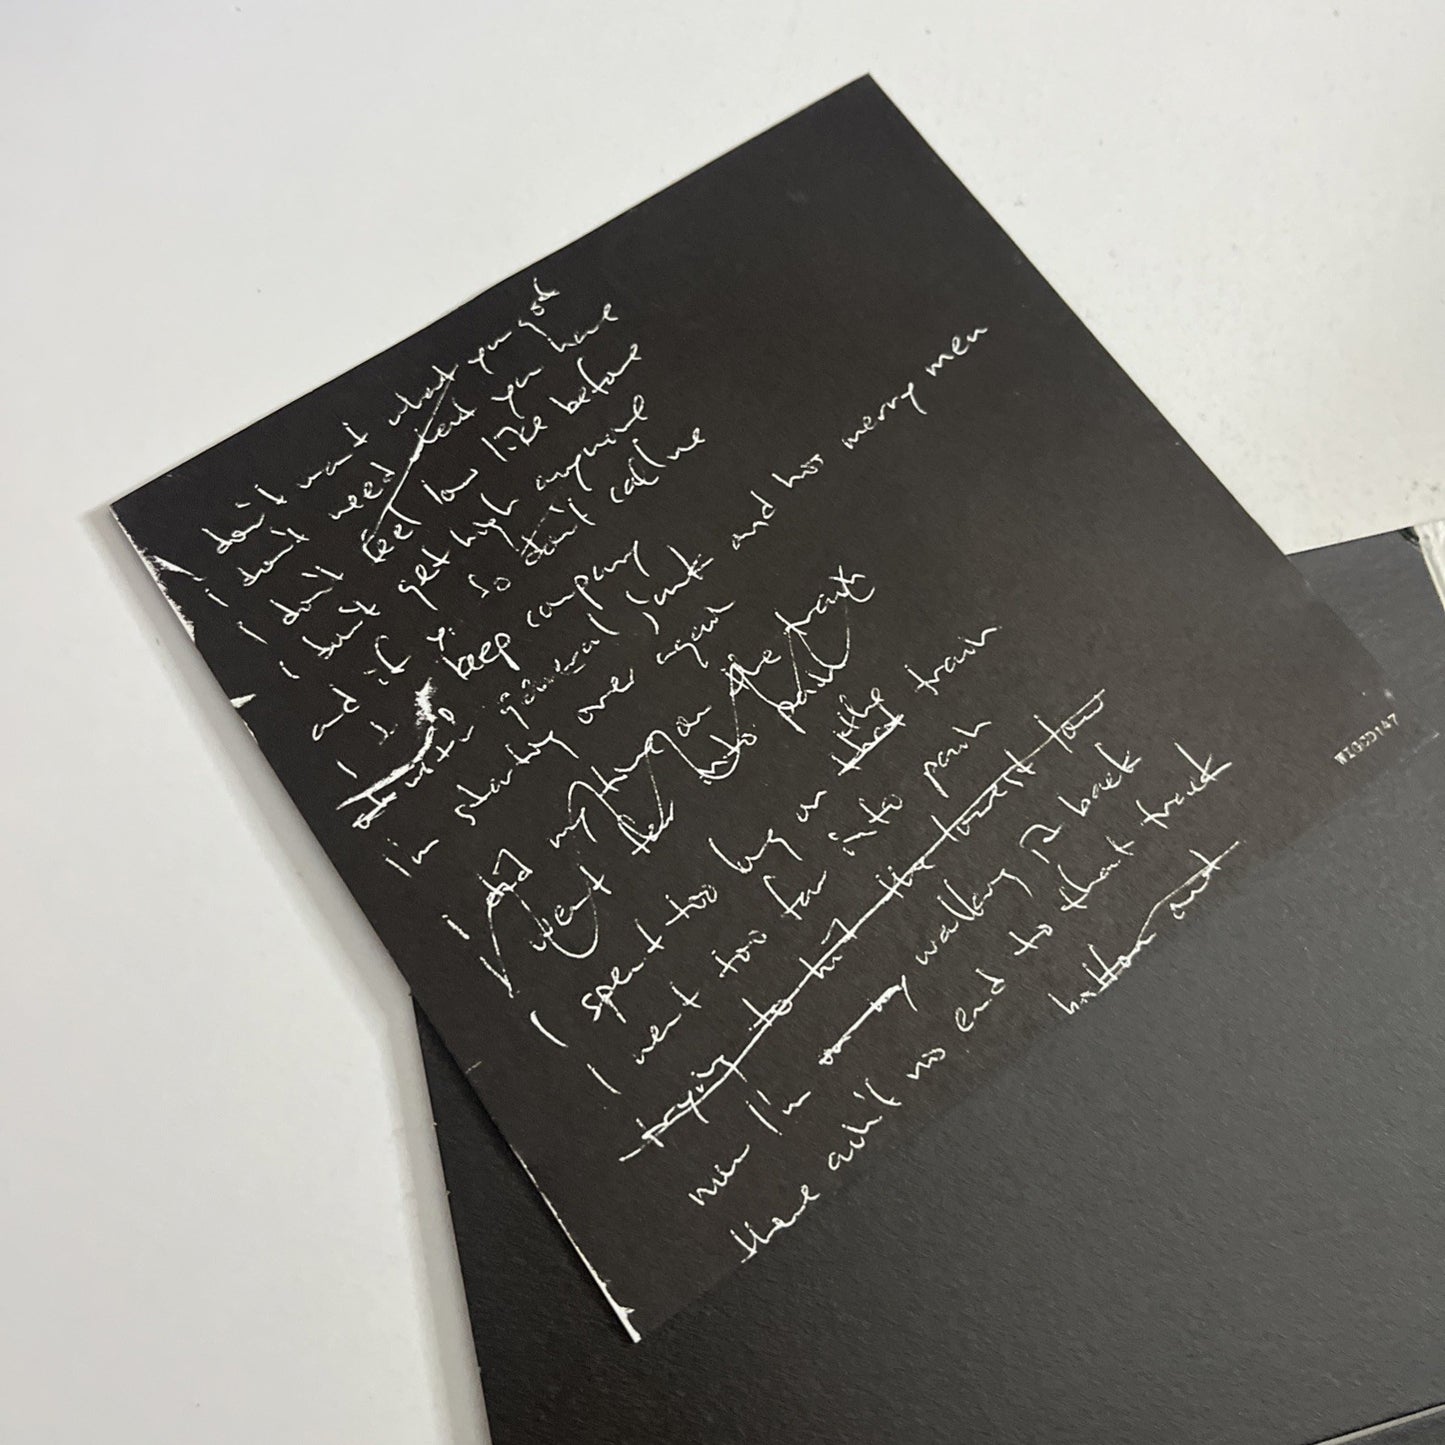 don't want what you got
I don't need what you have
I don't feel low like before
I don't get high anymore
and if I so don't call me
I keep company
with general Junk and his merry men
I'm starting over again
I did my time on the train
I went too far into pain
I spent too long on the that train
I went too far into pain
trying to hit the lowest low
now I'm on my walking it back
there ain't no end to that track
bottom out
WIGCD147